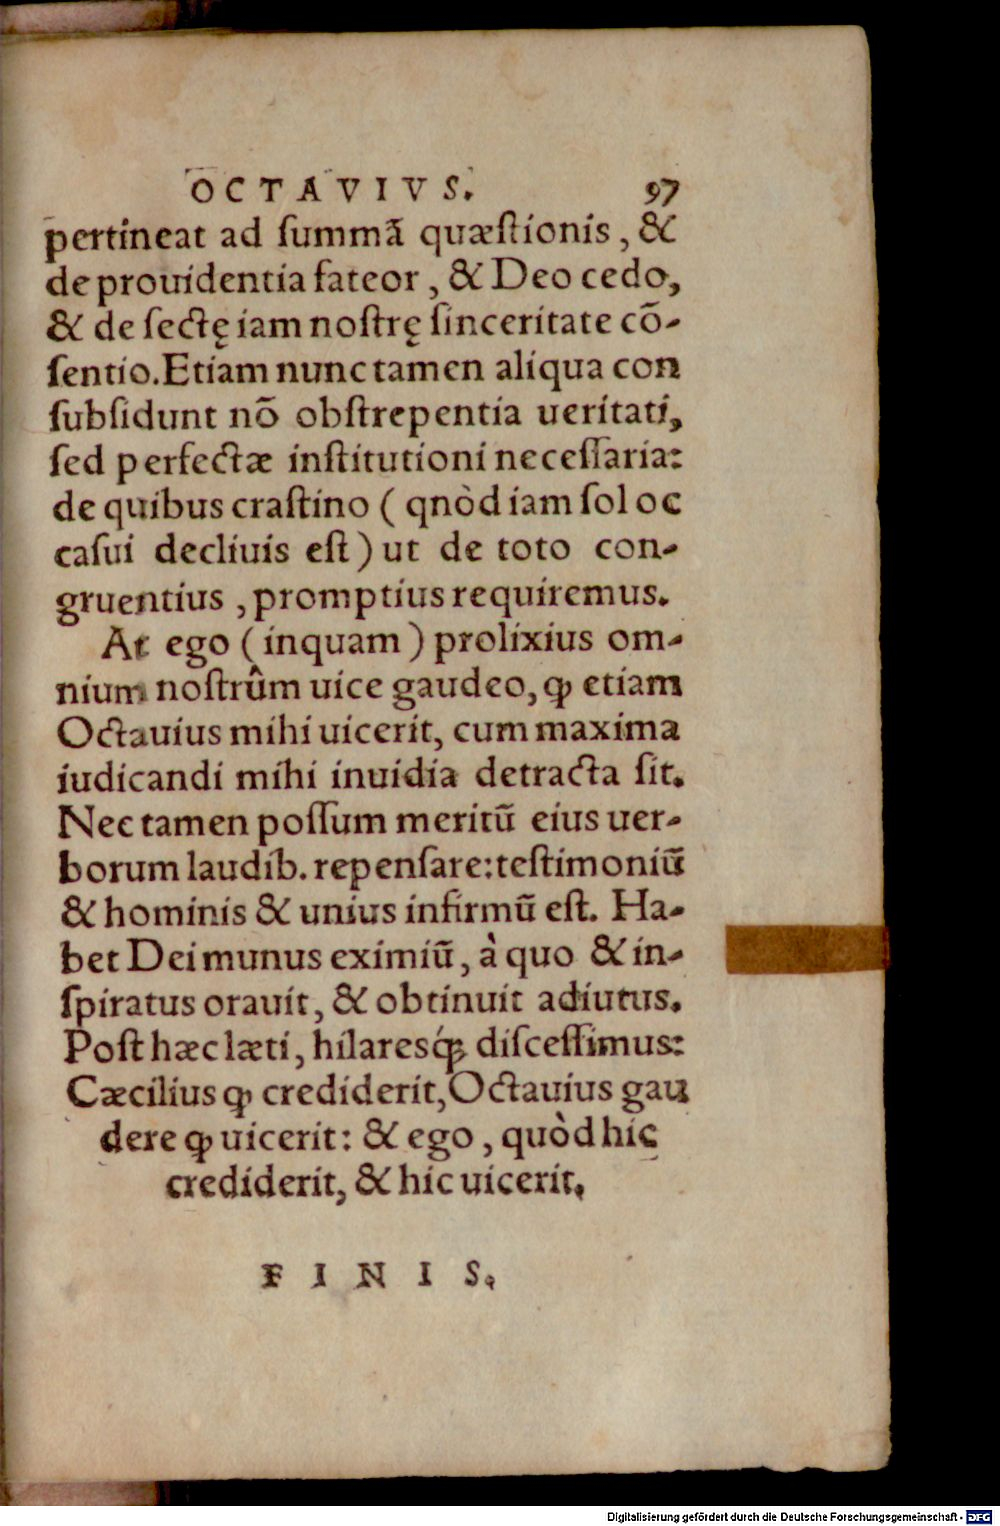 OCTAVIVS. 97
pertineat ad ſummā quæſtionis, &
de prouidentia fateor, & Deo cedo,
& de ſectę iam noſtrę ſinceritate cō-
ſentio. Etiam nunc tamen aliqua con
ſubſidunt nō obſtrepentia ueritati,
ſed perfectæ inſtitutioni neceſſaria:
de quibus craſtino ( qnòd iam ſol oc
caſui decliuis eſt ) ut de toto con-
gruentius, promptius requiremus.
At ego ( inquam ) prolixius om-
nium noſtrûm uice gaudeo, ꝙ etiam
Octauius mihi uicerit, cum maxima
iudicandi mihi inuidia detracta ſit.
Nec tamen poſſum meritū eius uer-
borum laudib. repenſare: teſtimoniū
& hominis & unius infirmū eſt. Ha-
bet Dei munus eximiū, à quo & in-
ſpiratus orauit, & obtinuit adiutus.
Poſt hæc læti, hilaresq́; diſceſſimus:
Cæcilius ꝙ crediderit, Octauius gau
dere ꝙ uicerit: & ego, quòd hic
crediderit, & hic uicerit.
FINIS.
Digitalisierung gefördert durch die Deutsche Forschungsgemeinschaft - DFG